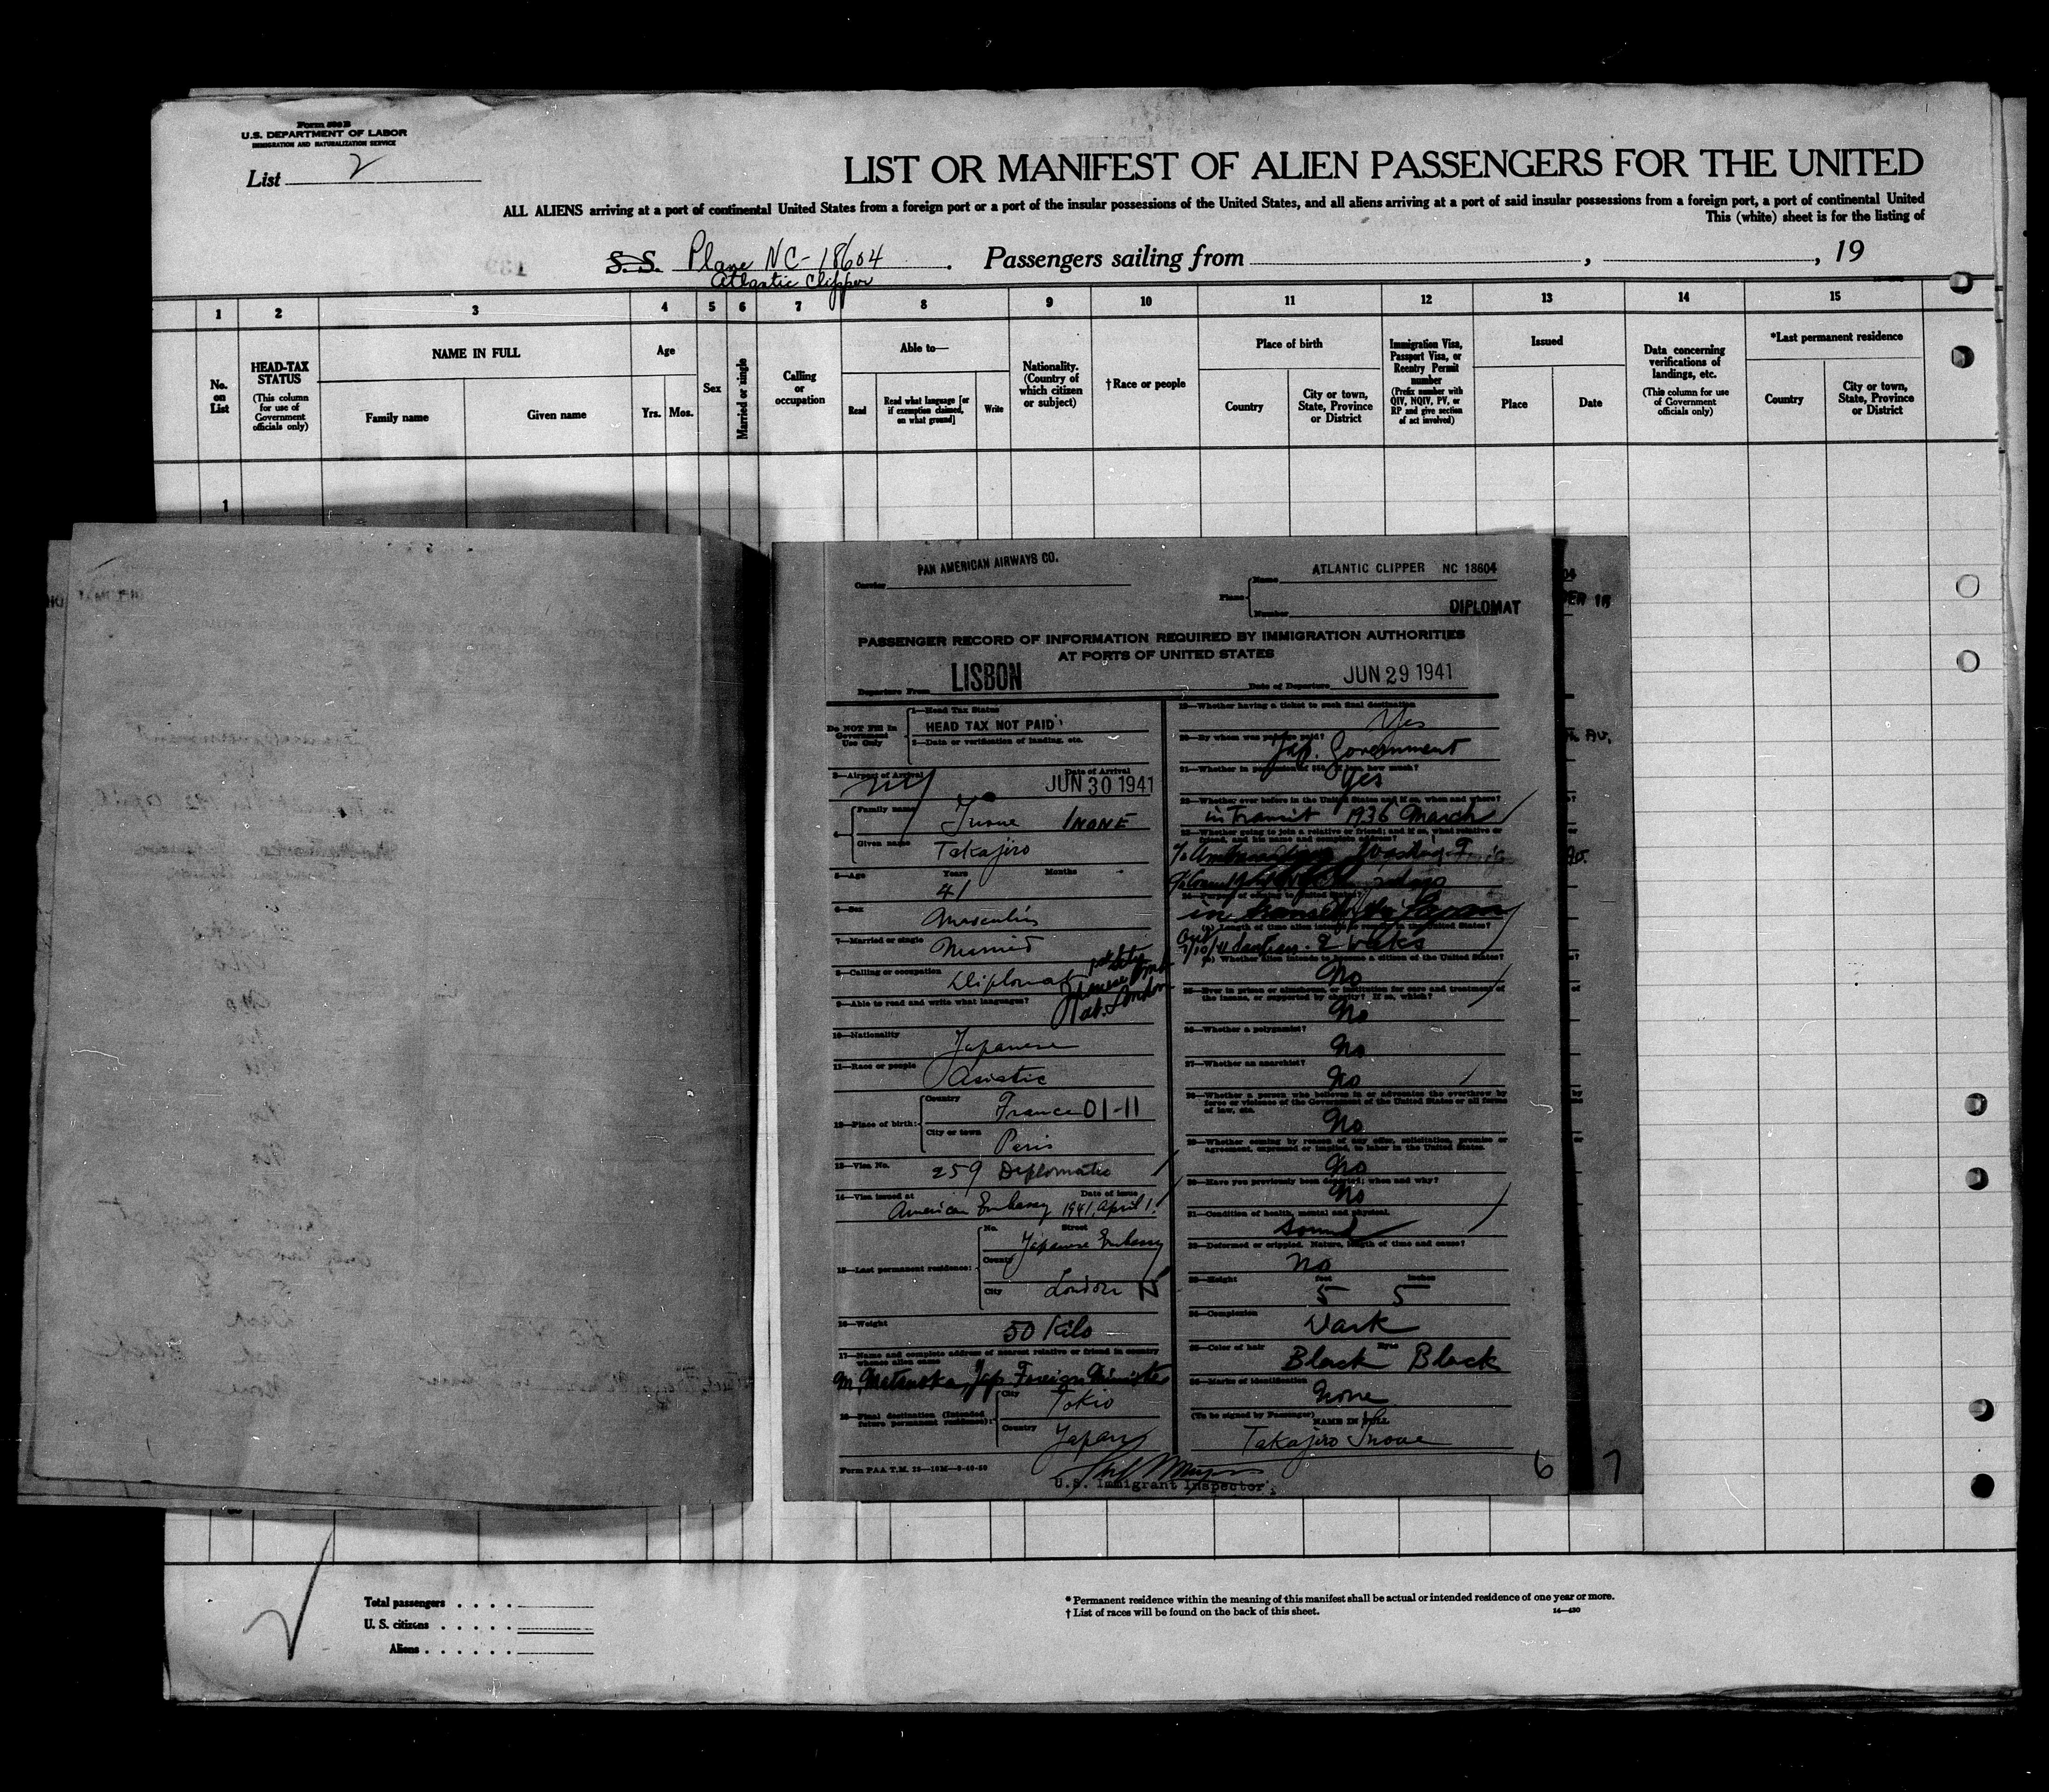 Form 500 B
U.S. DEPARTMENT OF LABOR
IMMIGRATION AND NATURALIZATION SERVICE
List 2
LIST OR MANIFEST OF ALIEN PASSENGERS FOR THE UNITED
ALL ALIENS arriving at a port of continental United States from a foreign port or a port of the insular possessions of the United States, and all aliens arriving at a port of said insular possessions from a foreign port, a port of continental United
This (white) sheet is for the listing of
S.S. Plane NC-18604 . Passengers sailing from , , 19
Atlantic Clipper
1 2 3 4 5 6 7 8 9 10 11 12 13 14 15
No. on List
HEAD-TAX STATUS
(This column for use of Government officials only)
NAME IN FULL
Family name
Given name
Age
Yrs. Mos.
Sex
Married or single
Calling or occupation
Able to—
Read
Read what language [or if exemption claimed, on what ground]
Write
Nationality. (Country of which citizen or subject)
†Race or people
Place of birth
Country
City or town, State, Province or District
Immigration Visa, Passport Visa, or Reentry Permit number
(Prefix number with QIV, NQIV, PV, or RP and give section of act involved)
Issued
Place
Date
Data concerning verifications of landings, etc.
(This column for use of Government officials only)
*Last permanent residence
Country
City or town, State, Province or District
1
Carrier PAN AMERICAN AIRWAYS CO.
Plane Name ATLANTIC CLIPPER NC 18604
Number DIPLOMAT
PASSENGER RECORD OF INFORMATION REQUIRED BY IMMIGRATION AUTHORITIES
AT PORTS OF UNITED STATES
Departure From LISBON
Date of Departure JUN 29 1941
Do NOT Fill In
Government
Use Only
1—Head Tax Status
HEAD TAX NOT PAID
2—Data or verification of landing, etc.
3—Airport of Arrival NY
Date of Arrival JUN 30 1941
4—Family name Inoue INONE
Given name Takajiro
5—Age Years Months
41
6—Sex Masculin
7—Married or single Married
8—Calling or occupation Diplomat
Japanese Emb
at London
9—Able to read and write what languages?
10—Nationality Japanese
11—Race or people Asiatic
12—Place of birth: Country France 01-11
City or town Paris
13—Visa No. 259 Diplomatic
14—Visa issued at Date of issue
American Embassy 1941, April 1.
15—Last permanent residence: No. Street
Japanese Embassy
County
City London
16—Weight 50 Kilo
17—Name and complete address of nearest relative or friend in country
whence alien came
M. Matsuoka, Jap. Foreign Minister
18—Final destination (Intended
future permanent residence): City Tokio
Country Japan
Form PAA T.M.
U.S. Immigrant Inspector
19—Whether having a ticket to such final destination
Yes
20—By whom was passage paid?
Jap. Government
21—Whether in possession of $50, if less, how much?
Yes
22—Whether ever before in the United States and if so, when and where?
in Transit 1936 March
23—Whether going to join a relative or friend; and if so, what relative or
friend, and his name and complete address?
24—Purpose of coming to United States?
in
(a) Length of time alien intends to remain in the United States?
7/10/41 2 weeks
(b) Whether alien intends to become a citizen of the United States?
No
25—Ever in prison or almshouse, or institution for care and treatment of
the insane, or supported by charity? If so, which?
No
26—Whether a polygamist?
No
27—Whether an anarchist?
No
28—Whether a person who believes in or advocates the overthrow by
force or violence of the Government of the United States or all forms
of law, etc.
No
29—Whether coming by reason of any offer, solicitation, promise or
agreement, expressed or implied, to labor in the United States.
No
30—Have you previously been deported; when and why?
No
31—Condition of health, mental and physical.
Sound
32—Deformed or crippled. Nature, length of time and cause?
No
33—Height feet inches
5 5
34—Complexion
Dark
35—Color of hair Eyes
Black Black
36—Marks of identification
None
(To be signed by Passenger) NAME IN FULL
Takajiro Inoue
6
7
Total passengers
U. S. citizens
Aliens
* Permanent residence within the meaning of this manifest shall be actual or intended residence of one year or more.
† List of races will be found on the back of this sheet.
14—430